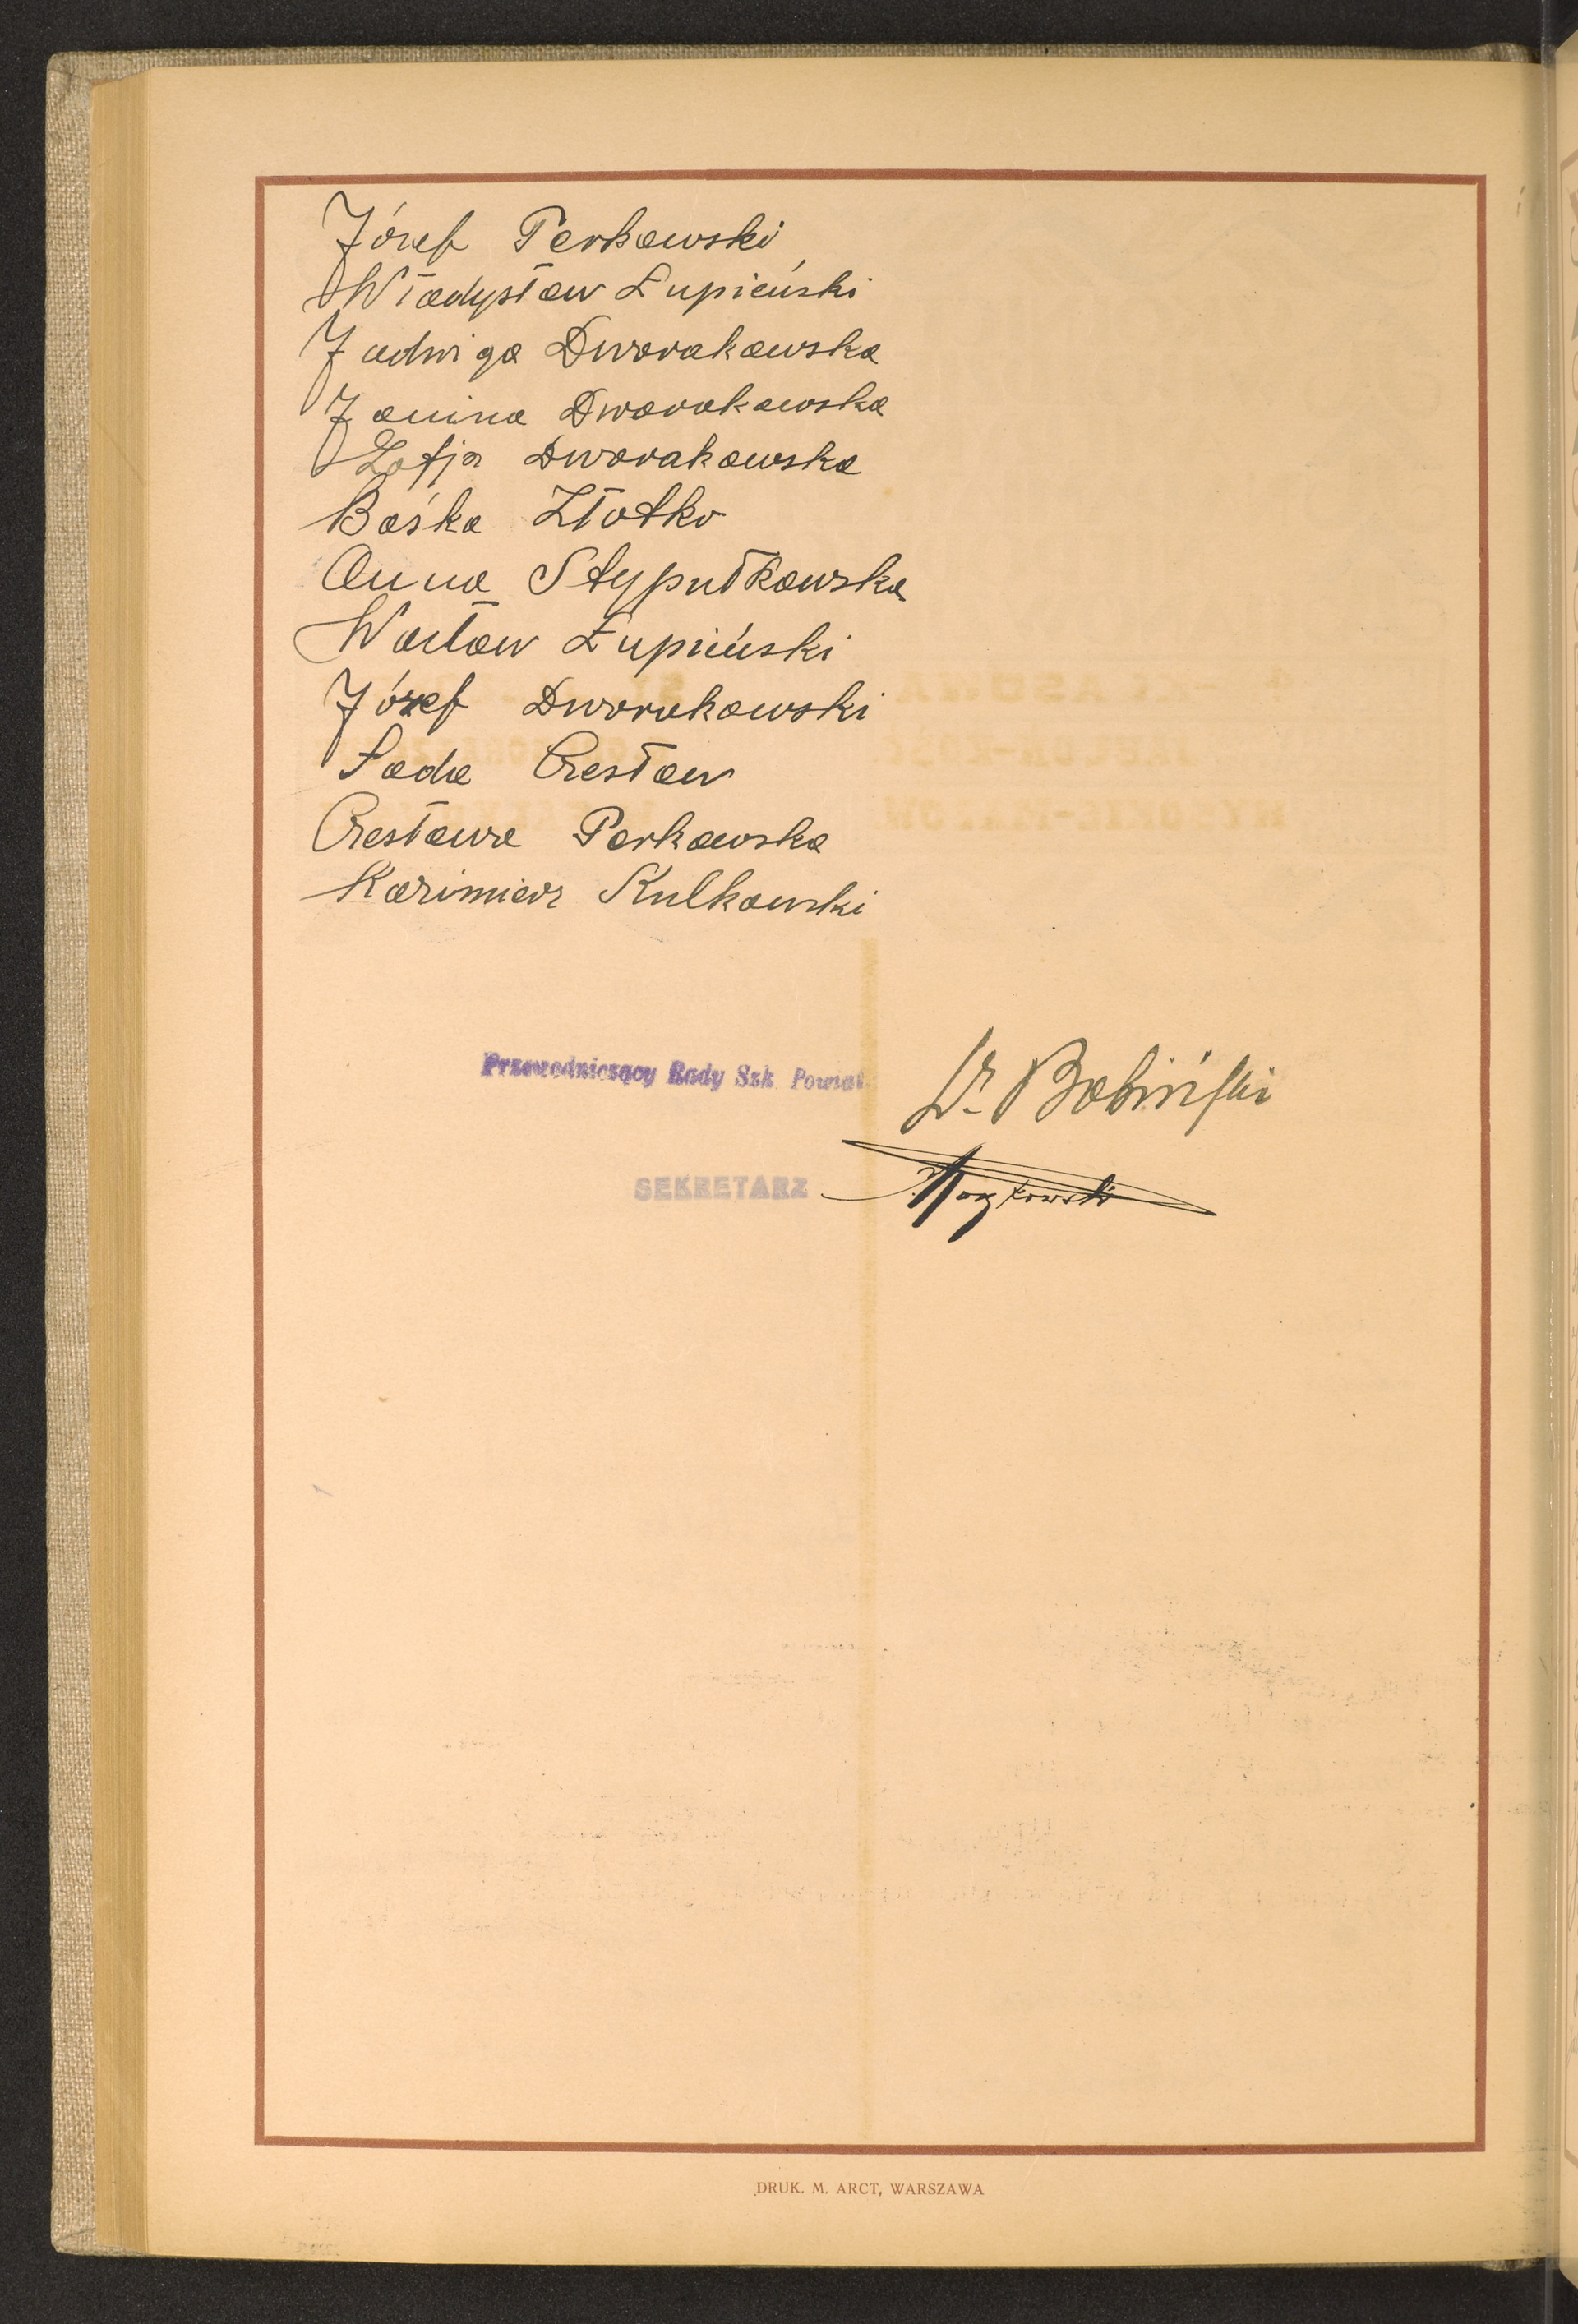 Józef Perkowski
Władysław Łupieński
Jadwiga Dworakowska
Janina Dworakowska
Zofja Dworakowska
Baśka Złotko
Anna Stypułkowska
Wacław Łupieński
Józef Dworakowski
Sada Czesław
Czesława Perkowska
Kazimierz Kulkowski
Przewodniczący Rady Szk. Powiat.
Dr Babiński
SEKRETARZ
DRUK. M. ARCT, WARSZAWA